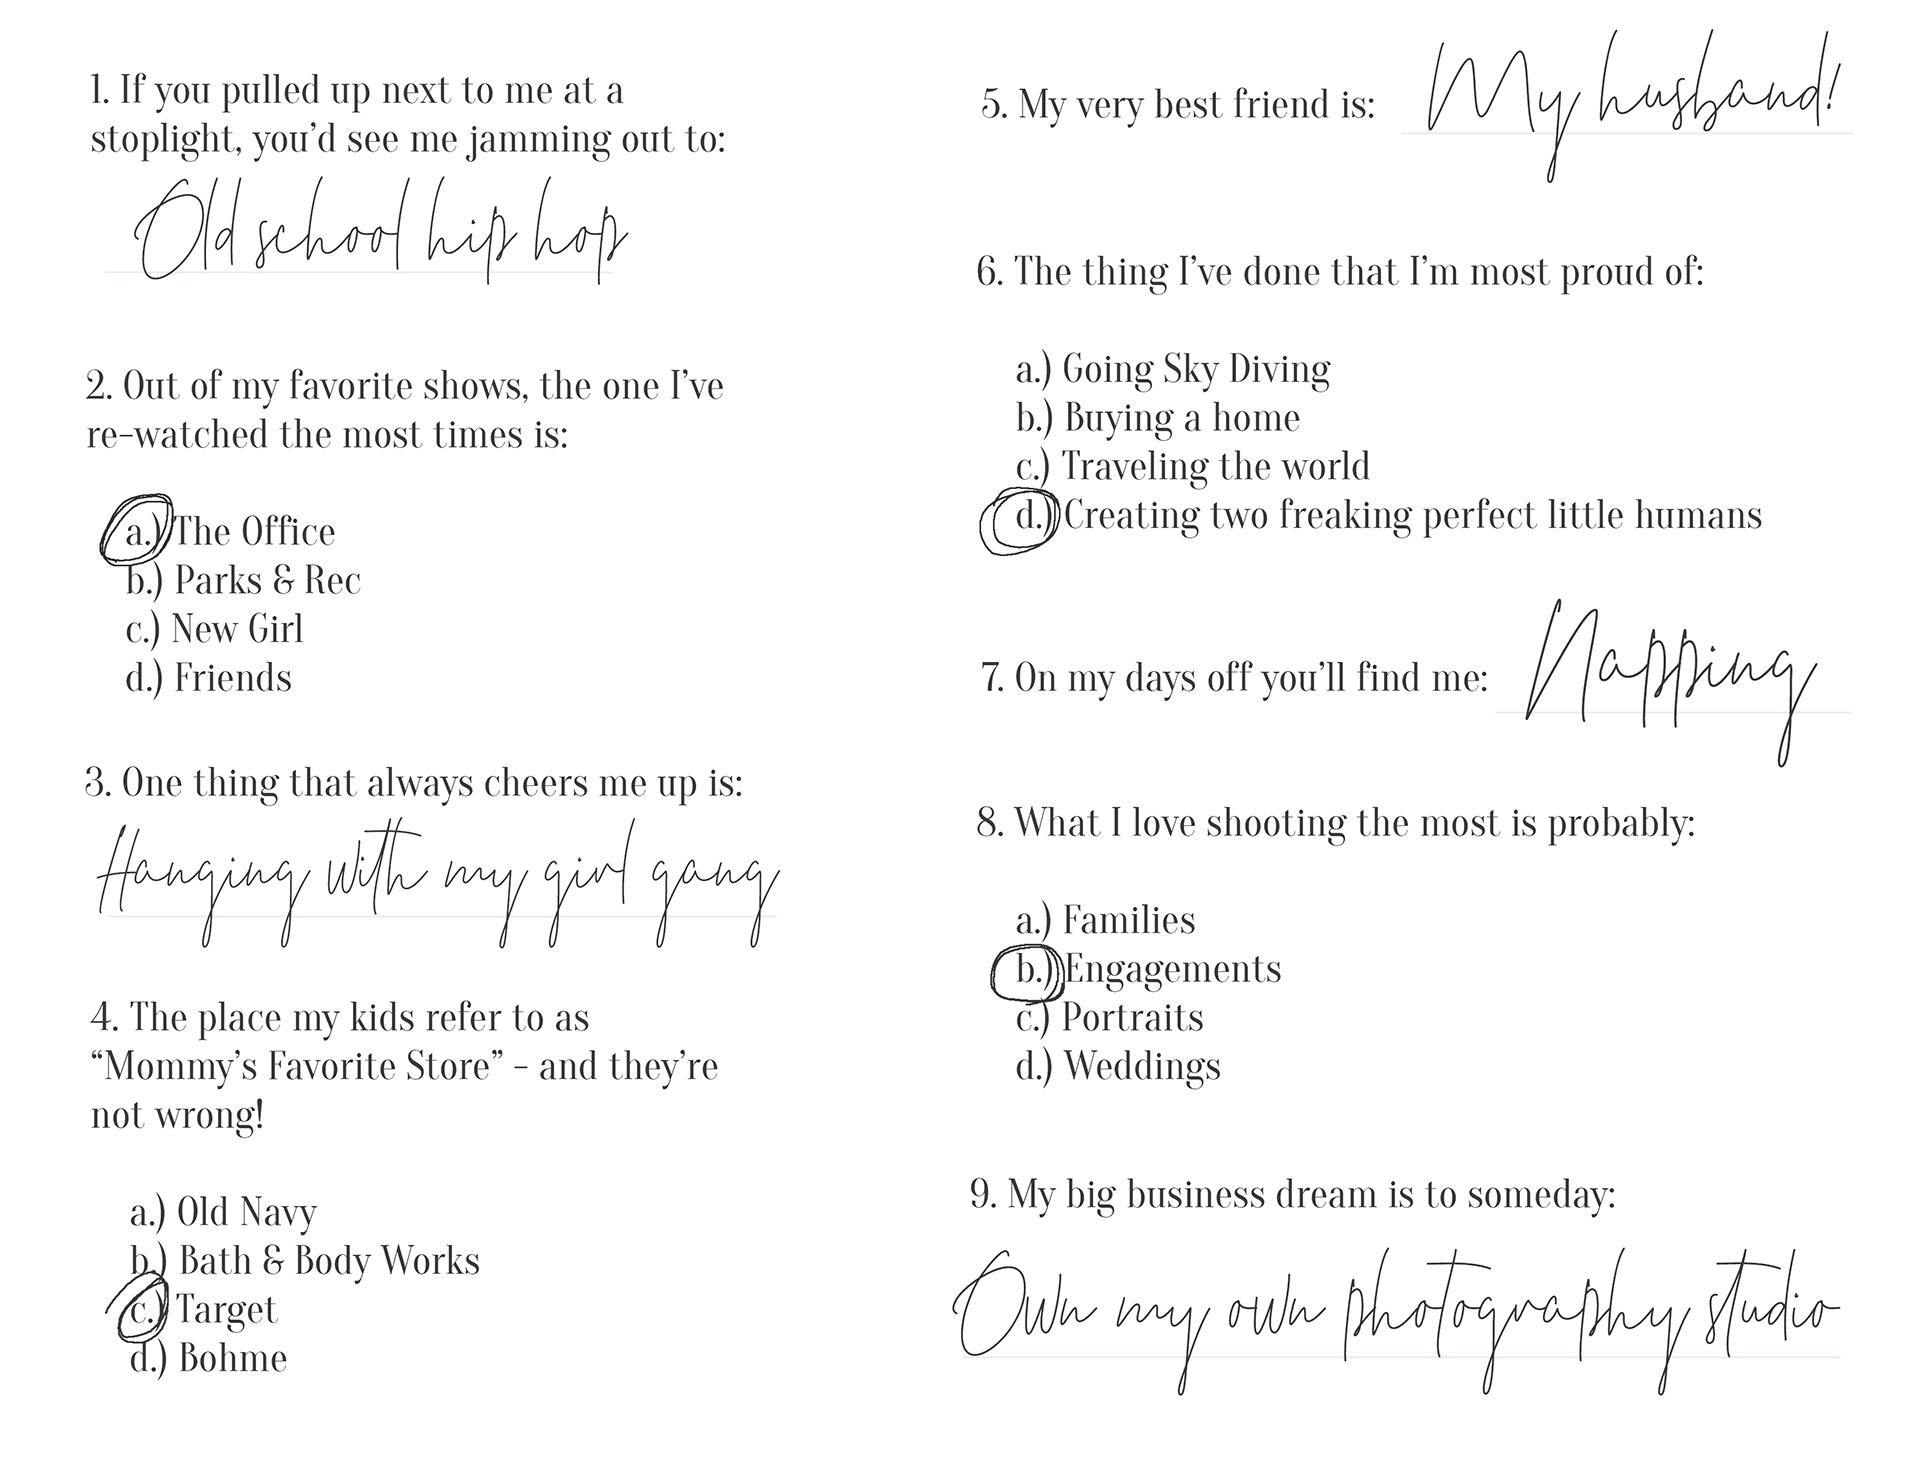 1. If you pulled up next to me at a
stoplight, you’d see me jamming out to:
Old school hip hop
2. Out of my favorite shows, the one I’ve
re-watched the most times is:
a.) The Office
b.) Parks & Rec
c.) New Girl
d.) Friends
3. One thing that always cheers me up is:
Hanging with my girl gang
4. The place my kids refer to as
“Mommy’s Favorite Store” - and they’re
not wrong!
a.) Old Navy
b.) Bath & Body Works
c.) Target
d.) Bohme
5. My very best friend is: My husband!
6. The thing I’ve done that I’m most proud of:
a.) Going Sky Diving
b.) Buying a home
c.) Traveling the world
d.) Creating two freaking perfect little humans
7. On my days off you’ll find me: Napping
8. What I love shooting the most is probably:
a.) Families
b.) Engagements
c.) Portraits
d.) Weddings
9. My big business dream is to someday:
Own my own photography studio